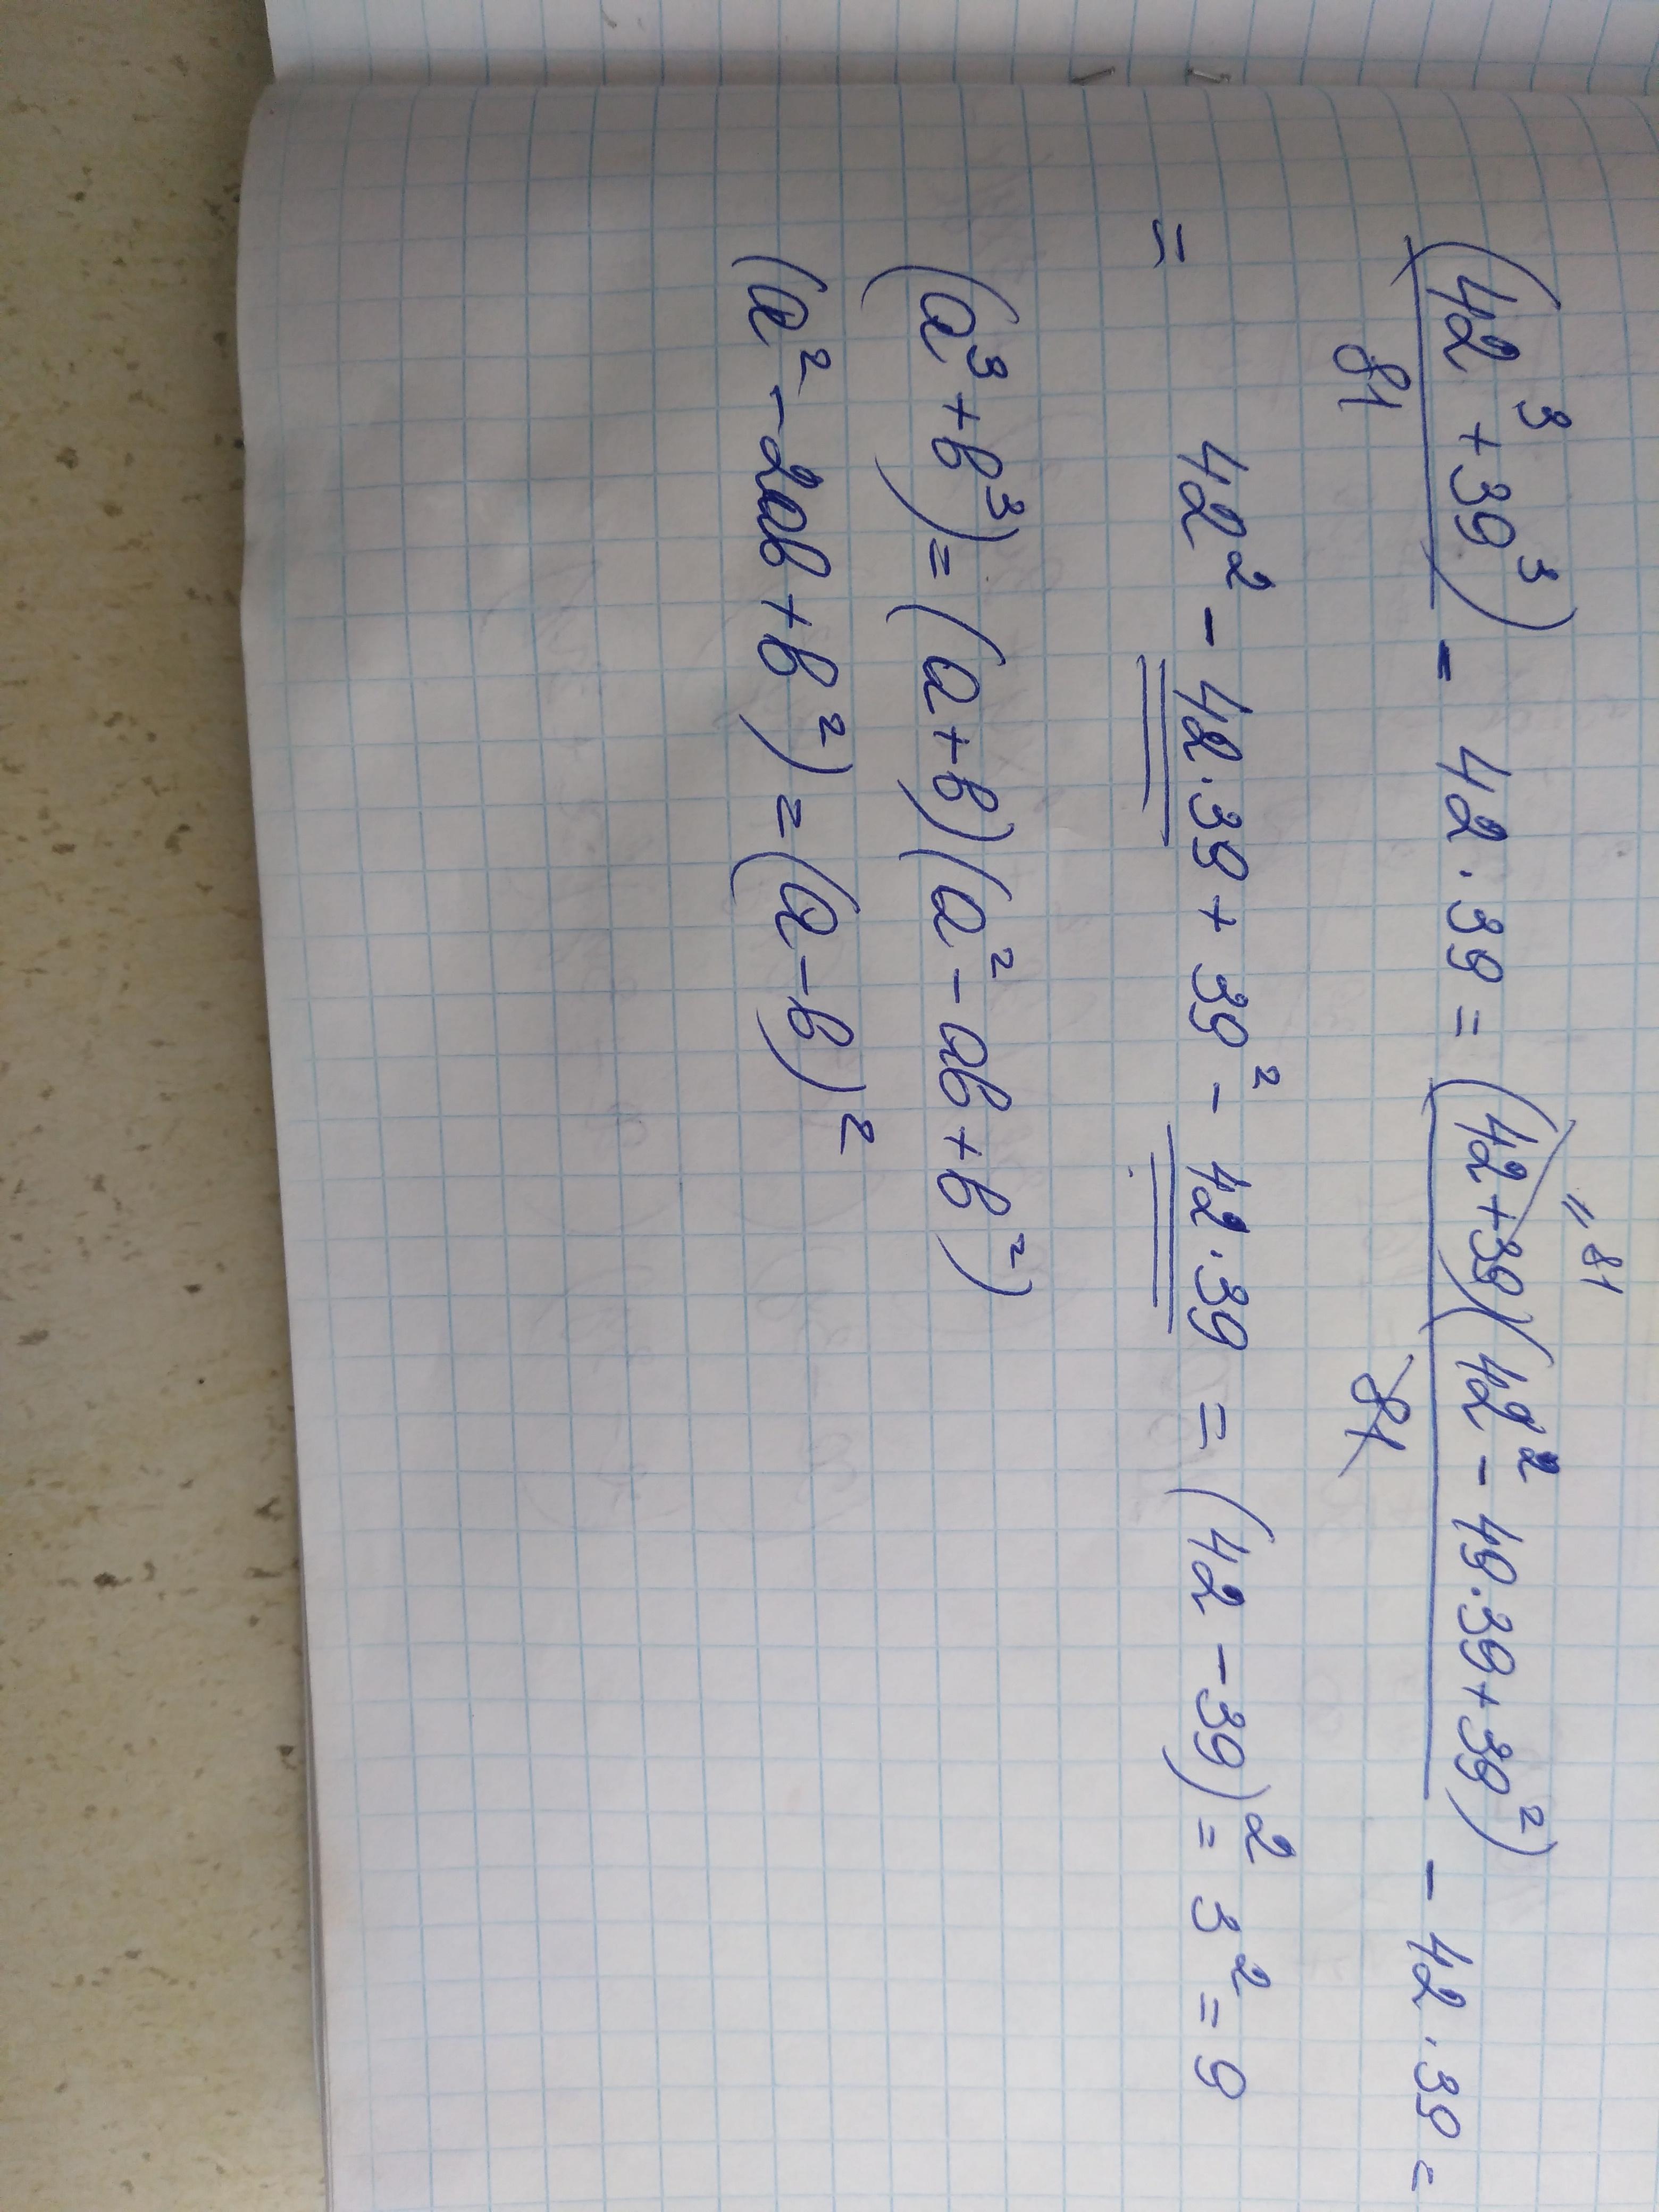 (42³+39³)/81 - 42·39 = (42+39)(42² - 42·39+39²)/81 - 42·39 =
= 81
= 42² - 42·39 + 39² - 42·39 = (42-39)² = 3² = 9
(a³+b³) = (a+b)(a²-ab+b²)
(a²-2ab+b²) = (a-b)²